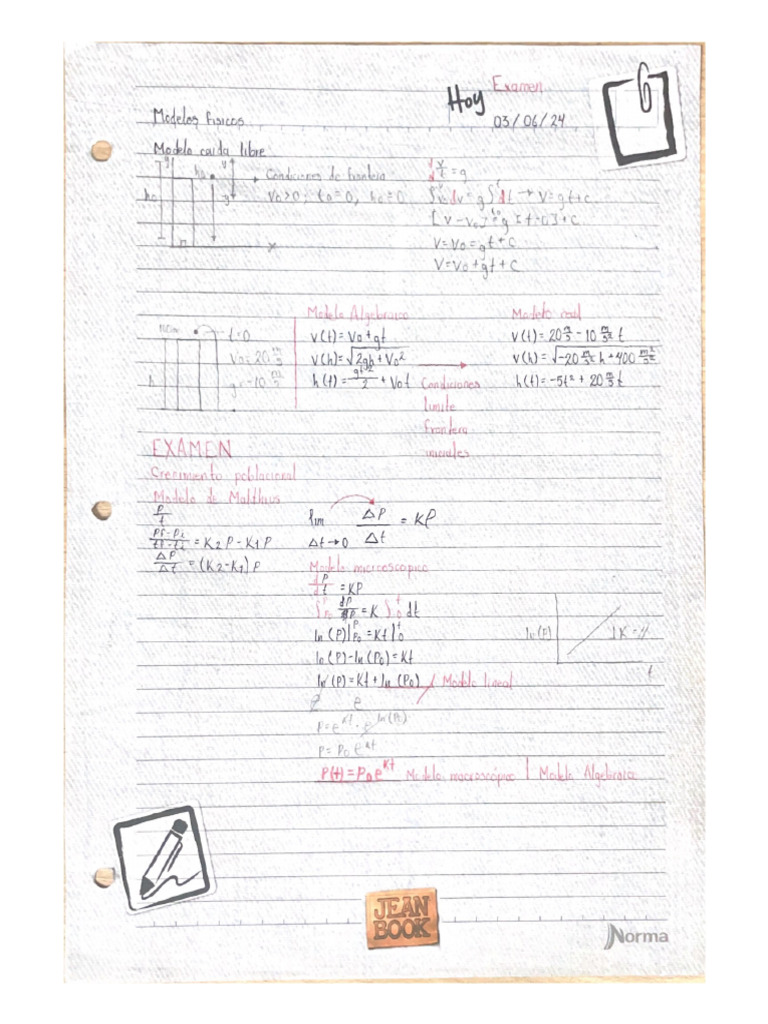 Examen
Hoy
03/06/24
Modelos Físicos
Modelo caída libre
Condiciones de frontera
V₀>0; t₀=0, h₀=0
dv/dt = g
∫dv = g∫dt → V=gt+c
[V-V₀]=g[t-0]+c
V=V₀=gt+c
V=V₀+gt+c
t=0
V₀=20 m/s
g=-10 m/s²
h
Modelo Algebraico
v(t)=V₀+gt
v(h)=√2gh+V₀²
h(t)=gt²/2+V₀t
Condiciones
limite
frontera
iniciales
Modelo real
v(t)=20 m/s-10 m/s² t
v(h)=√-20 m/s² h+400 m²/s²
h(t)=-5t²+20 m/s t
EXAMEN
Crecimiento poblacional
Modelo de Malthus
P/t
Pf-Pi/tf-ti=K₂P-K₁P
ΔP/Δt=(K₂-K₁)P
lim Δt→0 ΔP/Δt = KP
Modelo microescopico
dP/dt=KP
∫P₀ᴾ dP/P=K∫₀ᵗ dt
ln(P)|P₀ᴾ=Kt|₀ᵗ
ln(P)-ln(P₀)=Kt
ln(P)=Kt+ln(P₀) Modelo lineal
e e
P=eᴷᵗ·e^ln(P₀)
P=P₀eᴷᵗ
P(t)=P₀eᴷᵗ Modelo macroscópico | Modelo Algebraico
ln(P)
t
JEAN
BOOK
Norma